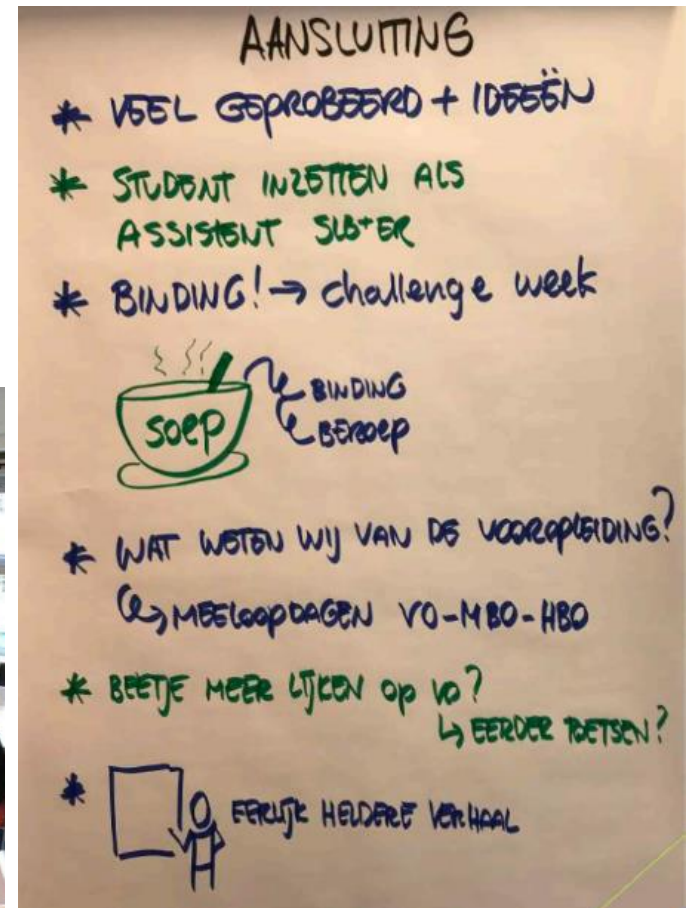 AANSLUITING
* VEEL GEPROBEERD + IDEEËN
* STUDENT INZETTEN ALS
ASSISTENT SLB+ER
* BINDING! → challenge week
SOEP
BINDING
BEROEP
* WAT WETEN WIJ VAN DE VOOROPLEIDING?
↳ MEELOOPDAGEN VO-MBO-HBO
* BEETJE MEER LIJKEN OP VO?
↳ EERDER TOETSEN?
* EERLIJK HELDERE VERHAAL